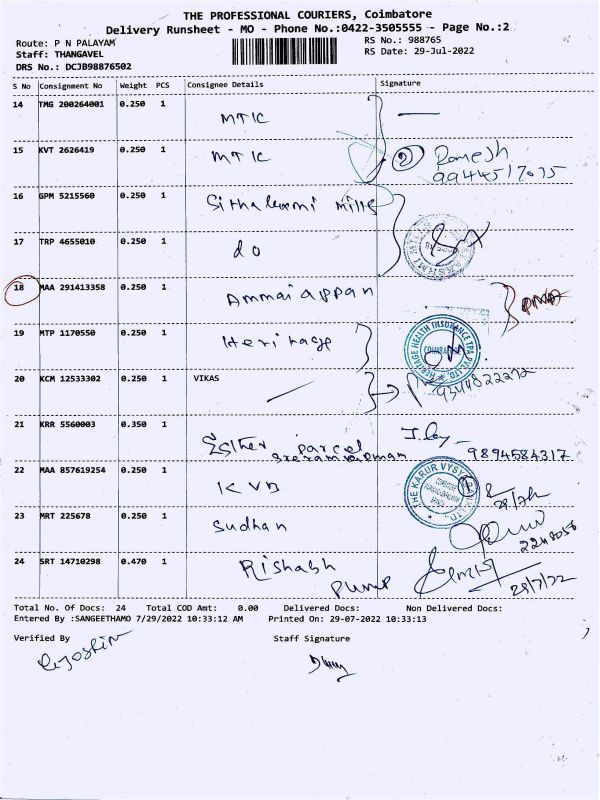 THE PROFESSIONAL COURIERS, Coimbatore
Delivery Runsheet - MO - Phone No.:0422-3505555 - Page No.:2
Route: P N PALAYAM RS No.: 988765
Staff: THANGAVEL RS Date: 29-Jul-2022
DRS No.: DCJB98876502
S No Consignment No Weight PCS Consignee Details Signature
14 TMG 200264001 0.250 1 MTIC
15 KVT 2626419 0.250 1 MTIC 2 Ramesh
16 GPM 5215560 0.250 1 Sithalaxmi Mills
17 TRP 4655010 0.250 1 do
18 MAA 291413358 0.250 1 Ammaiappan
19 MTP 1170550 0.250 1 Heritage HERITAGE HEALTH INSURANCE TPA PVT LTD.
20 KCM 12533302 0.250 1 VIKAS 9344822272
21 KRR 5560003 0.350 1 Esther parcel 9894584317
22 MAA 857619254 0.250 1 KVB THE KARUR VYSYA BANK LTD. 1
23 MRT 225678 0.250 1 Sudhan
24 SRT 14710298 0.470 1 Rishabh Pump 29/7/22
Total No. Of Docs: 24 Total COD Amt: 0.00 Delivered Docs: Non Delivered Docs:
Entered By :SANGEETHAMO 7/29/2022 10:33:12 AM Printed On: 29-07-2022 10:33:13
Verified By Staff Signature